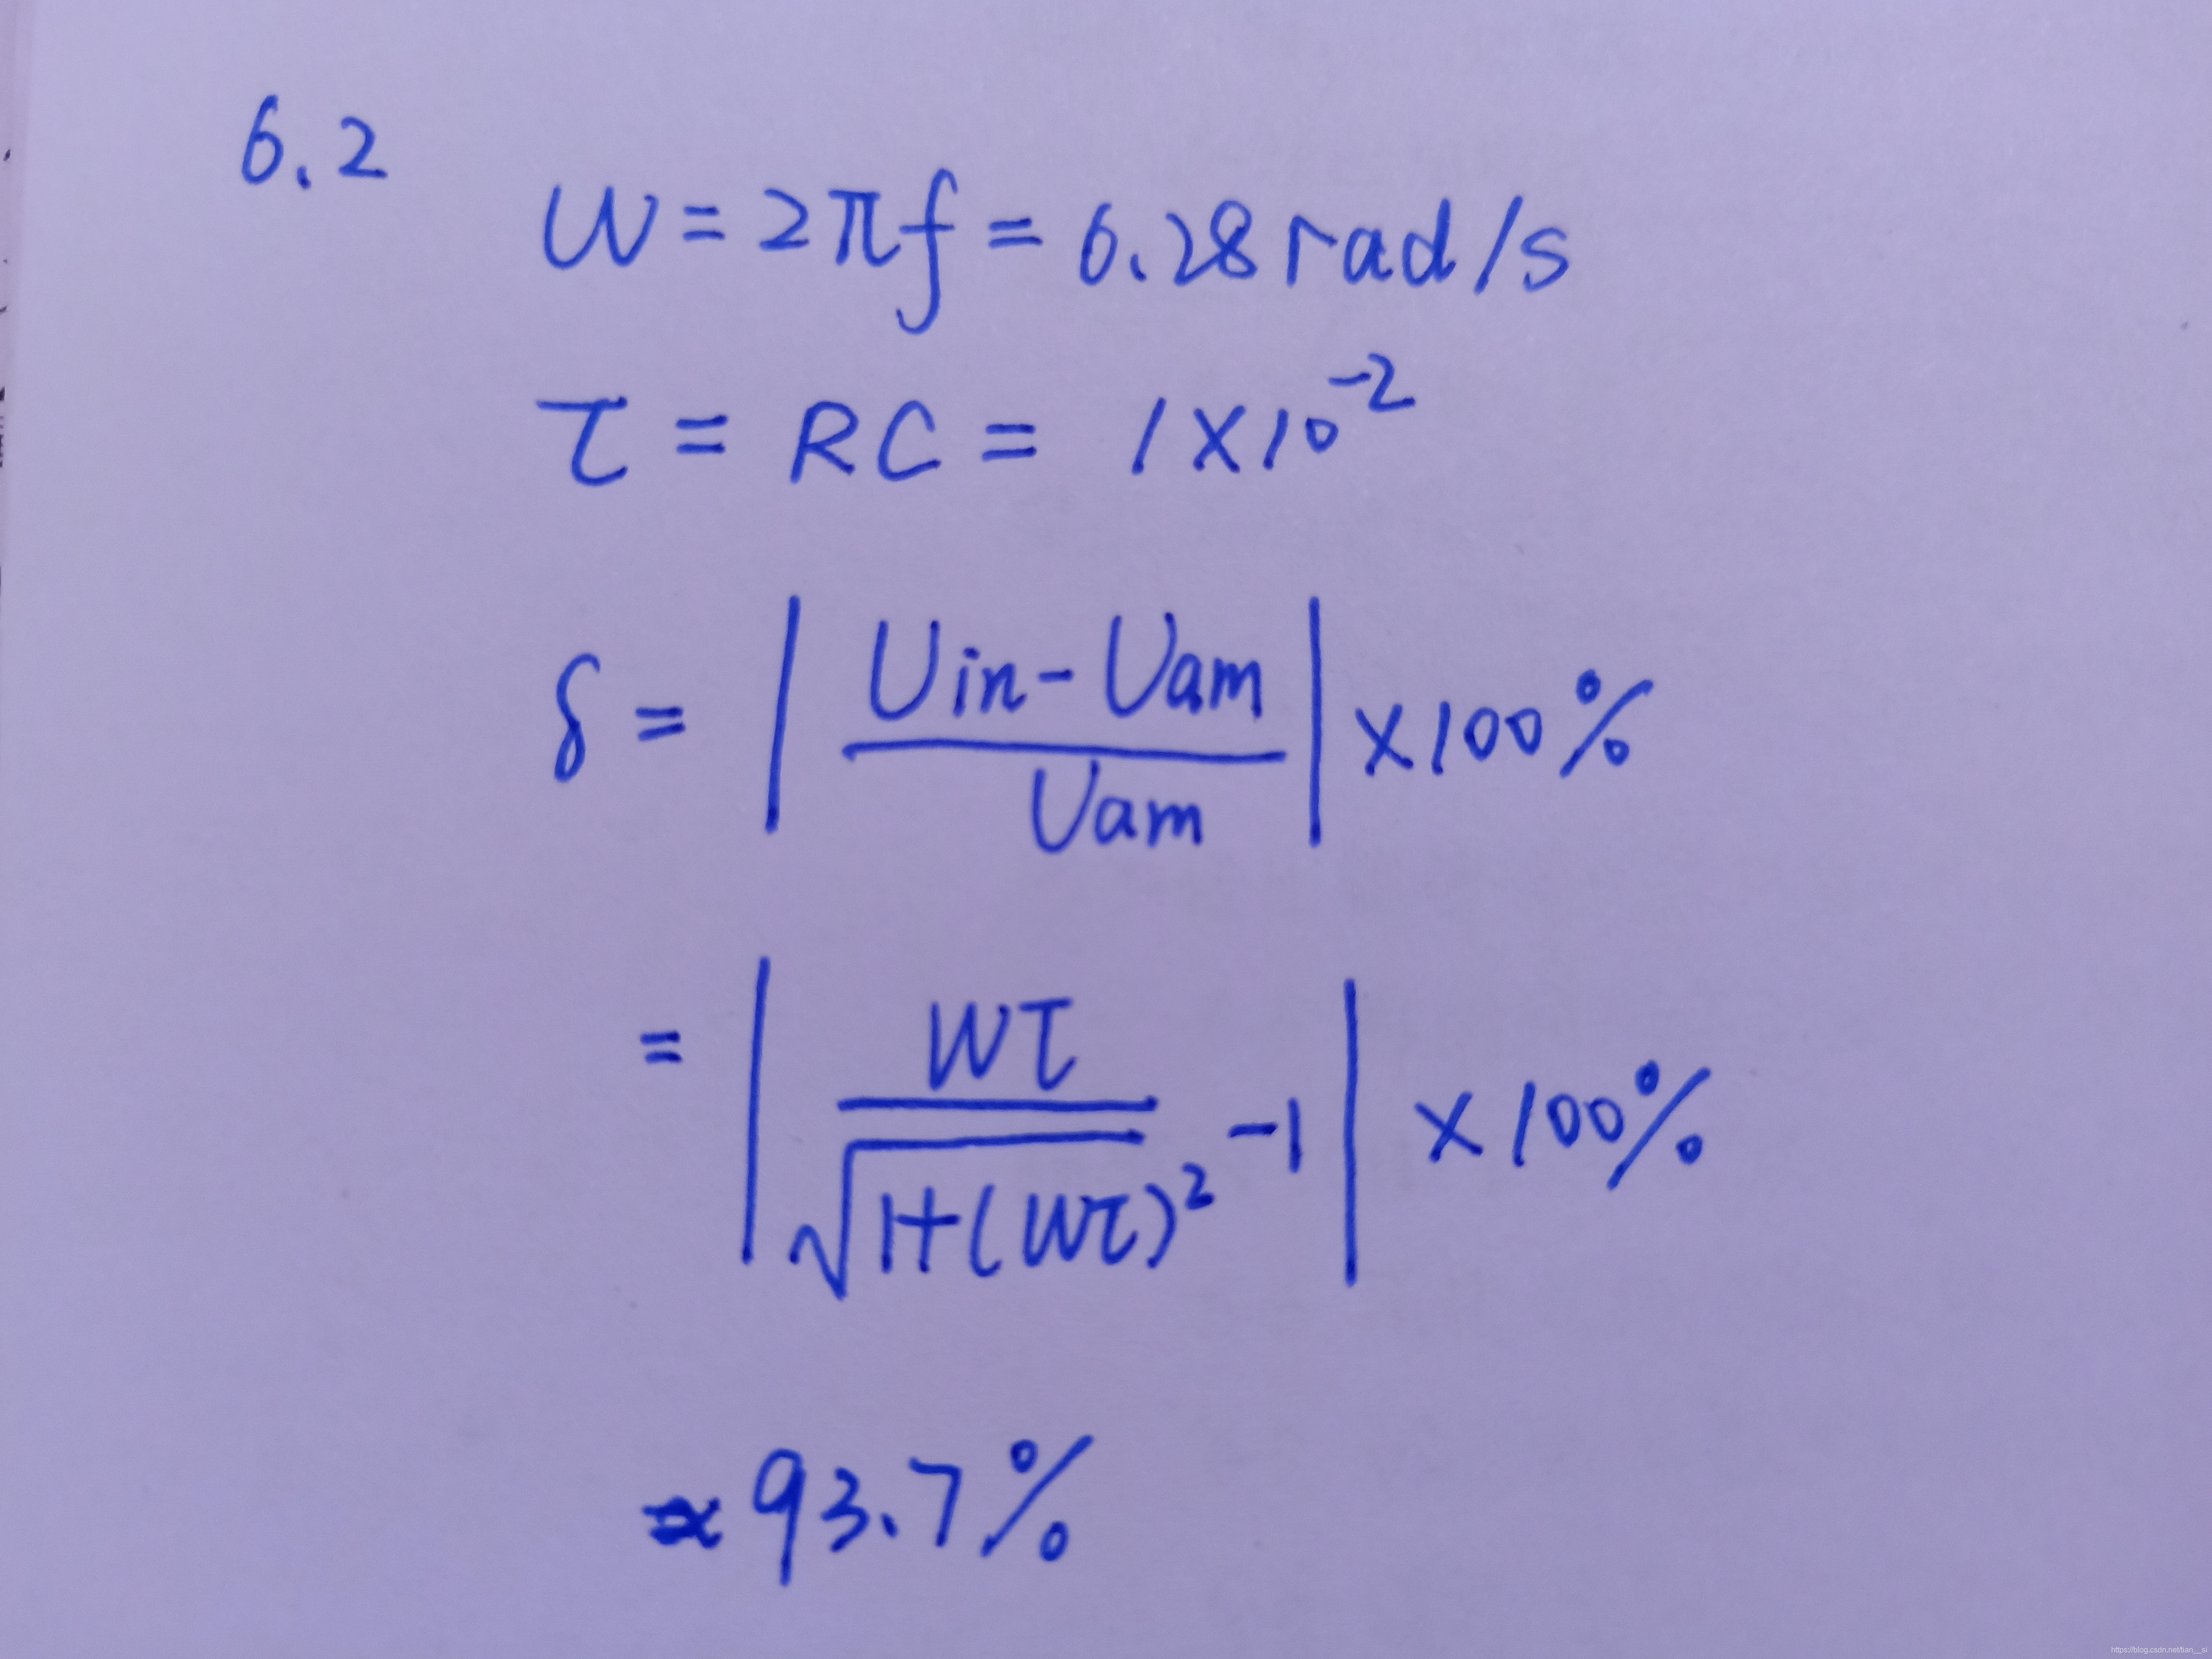 6.2
W = 2πf = 6.28 rad/s
τ = RC = 1×10⁻²
δ = | (Uin - Uam) / Uam | ×100%
= | Wτ / √(1+(Wτ)²) - 1 | × 100%
≈ 93.7%
https://blog.csdn.net/tian__si